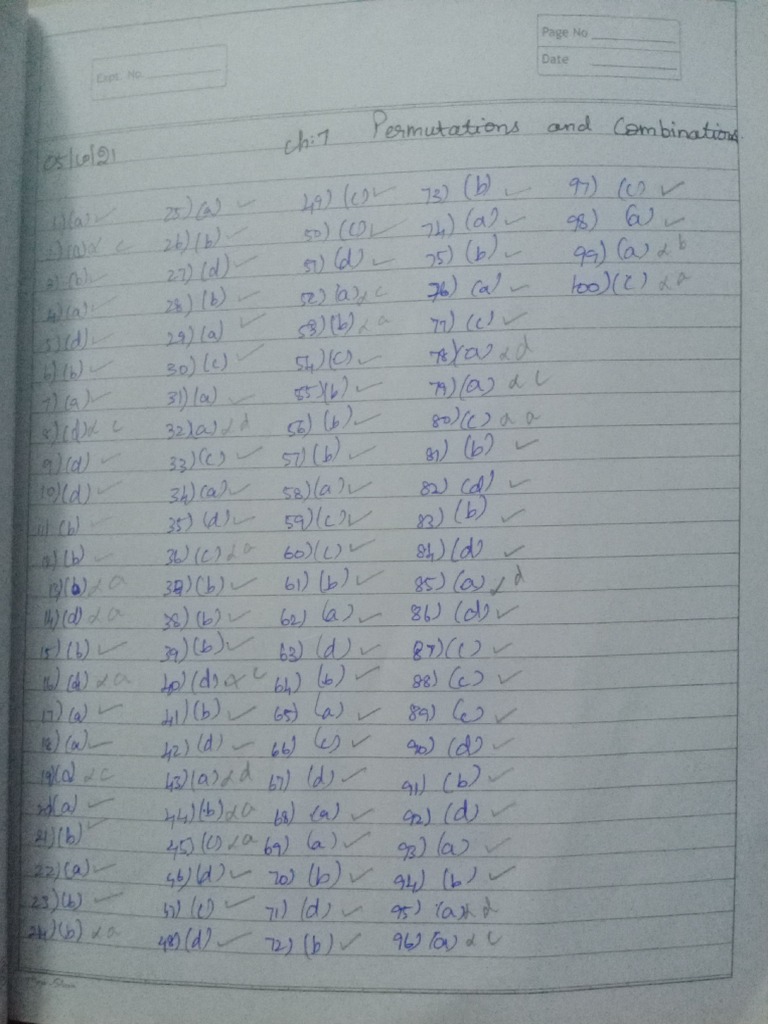 Page No
Date
Expt. No.
05/6/21
Ch:7 Permutations and Combinations.
1) (a) ✓ 25) (a) ✓ 49) (c) ✓ 73) (b) ✓ 97) (c) ✓
2) (a) x c 26) (b) ✓ 50) (c) ✓ 74) (a) ✓ 98) (a) ✓
3) (b) ✓ 27) (d) ✓ 51) (d) ✓ 75) (b) ✓ 99) (a) x b
4) (a) ✓ 28) (b) ✓ 52) (a) x c 76) (a) ✓ 100) (c) x a
5) (d) ✓ 29) (a) ✓ 53) (b) x a 77) (c) ✓
6) (b) ✓ 30) (c) ✓ 54) (c) ✓ 78) (a) x d
7) (a) ✓ 31) (a) ✓ 55) (b) ✓ 79) (a) x c
8) (d) x c 32) (a) x d 56) (b) ✓ 80) (c) x a
9) (d) ✓ 33) (c) ✓ 57) (b) ✓ 81) (b) ✓
10) (d) ✓ 34) (a) ✓ 58) (a) ✓ 82) (d) ✓
11) (b) ✓ 35) (d) ✓ 59) (c) ✓ 83) (b) ✓
12) (b) ✓ 36) (c) x a 60) (c) ✓ 84) (d) ✓
13) (b) x a 37) (b) ✓ 61) (b) ✓ 85) (a) x d
14) (d) x a 38) (b) ✓ 62) (a) ✓ 86) (d) ✓
15) (b) ✓ 39) (b) ✓ 63) (d) ✓ 87) (c) ✓
16) (d) x a 40) (d) x c 64) (b) ✓ 88) (c) ✓
17) (a) ✓ 41) (b) ✓ 65) (a) ✓ 89) (c) ✓
18) (a) ✓ 42) (d) ✓ 66) (c) ✓ 90) (d) ✓
19) (a) x c 43) (a) x d 67) (d) ✓ 91) (b) ✓
20) (a) ✓ 44) (b) x a 68) (a) ✓ 92) (d) ✓
21) (b) ✓ 45) (c) x a 69) (a) ✓ 93) (a) ✓
22) (a) ✓ 46) (d) ✓ 70) (b) ✓ 94) (b) ✓
23) (b) ✓ 47) (c) ✓ 71) (d) ✓ 95) (a) x d
24) (b) x a 48) (d) ✓ 72) (b) ✓ 96) (a) x c